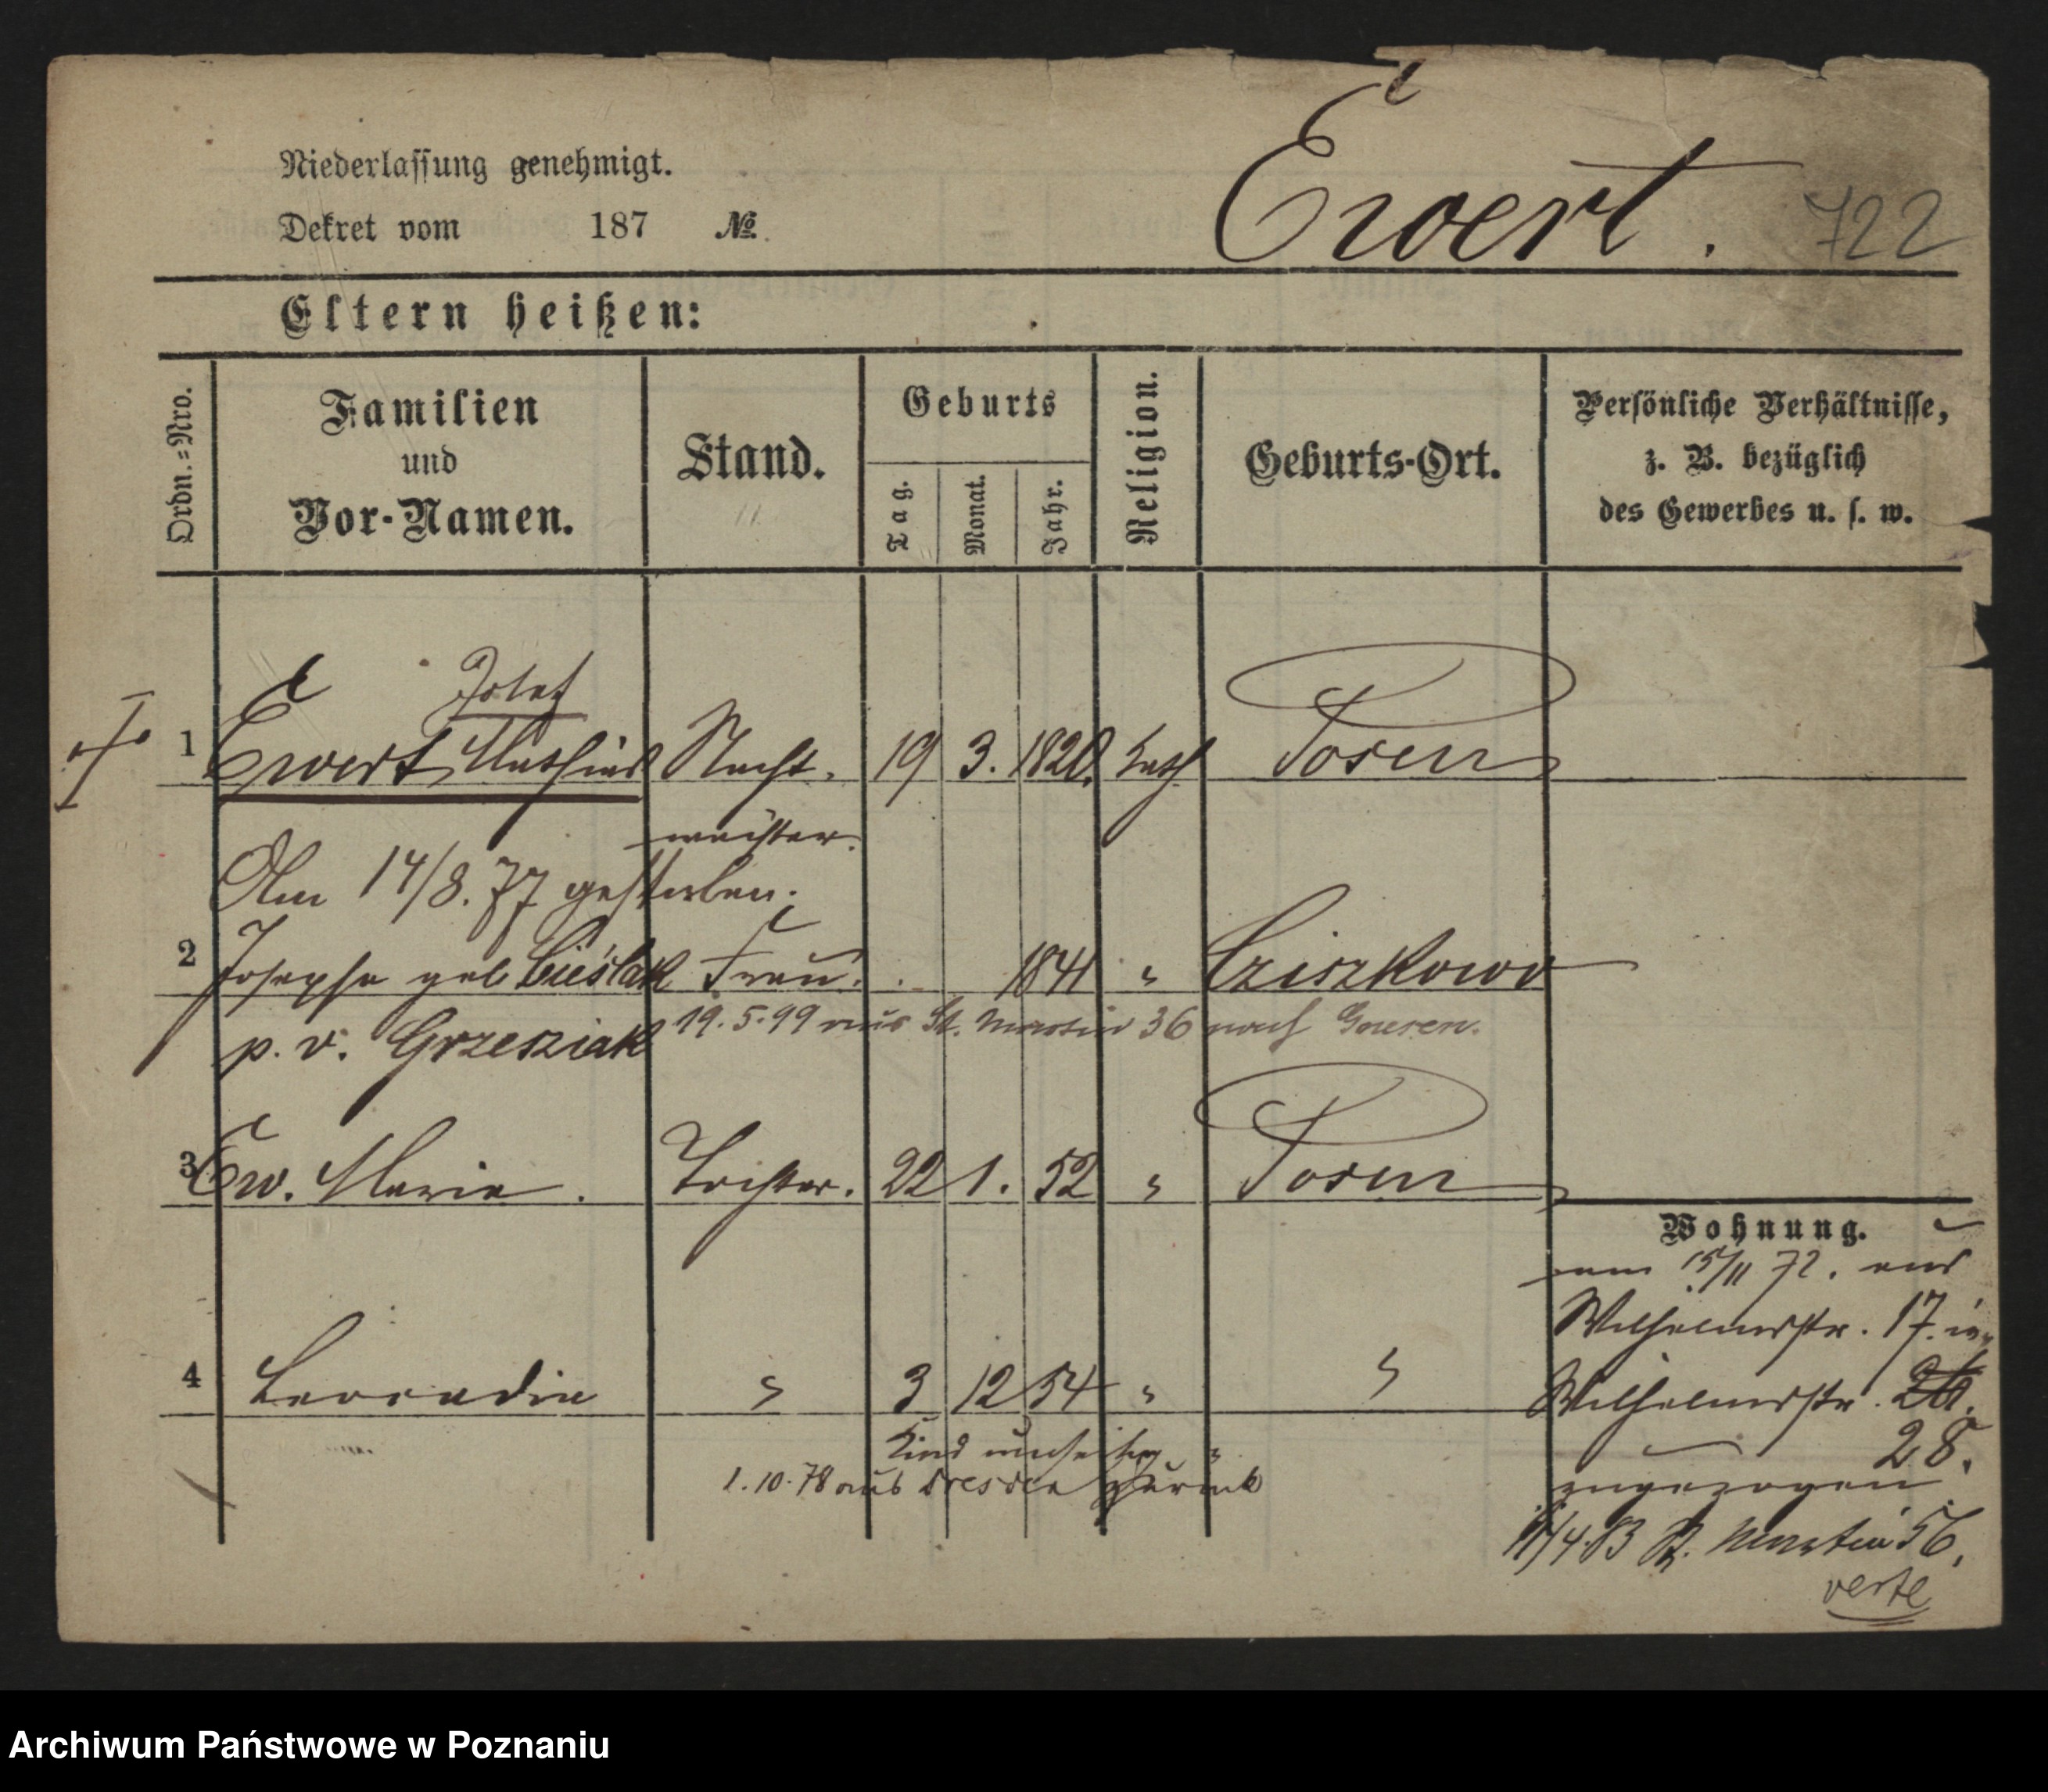 Niederlassung genehmigt.
Dekret vom 187 №
Ewert. 722
Eltern heißen:
Ordn.=Nro.
Familien
und
Vor-Namen.
Stand.
Geburts
Tag.
Monat.
Jahr.
Religion.
Geburts-Ort.
Persönliche Verhältnisse,
z. B. bezüglich
des Gewerbes u. s. w.
Josef
1 Ewert Mathias 19 3. 1820. kath Posen
Am 14/8. 77 gestorben.
2 Josepha geb Cieślak Frau. 1841 " Cziszkowo
p. v. Grzesziak 19. 5. 99 aus St. Martin 36 nach
3 Ew. Marie. Tochter. 22 1. 52 " Posen
Wohnung.
am 15/11 72. aus
Wilhelmstr. 17. in
4 Leocadia " 3 12 54 " "
Wilhelmstr.
28.
Kind umseitig
1. 10. 78 aus Dresden zurück
zugezogen
4.83 St. Martin 56.
verte
Archiwum Państwowe w Poznaniu